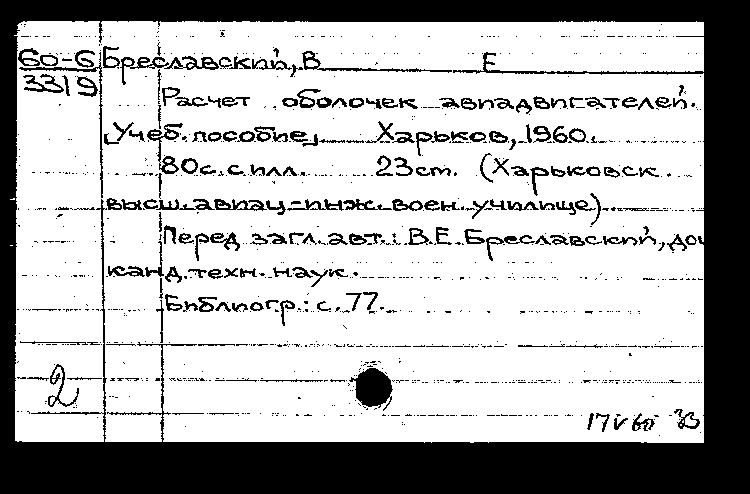 60-6 Бреславский, В Е
3319
Расчет оболочек авиадвигателей.
[Учеб. пособие]. Харьков, 1960.
80с. с илл. 23см. (Харьковск.
высш. авиац-инж. воен. училище).
Перед загл. авт.: В.Е. Бреславский, доц
канд. техн. наук.
Библиогр.: с. 77.
2
17 V 60